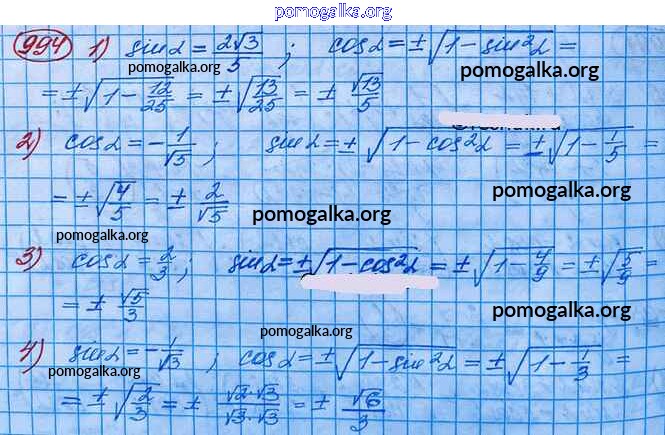 pomogalka.org
994 1) sinα = 2√3/5 ; cosα = ±√(1 − sin²α) =
pomogalka.org pomogalka.org
= ±√(1 − 12/25) = ±√(13/25) = ± √13/5
2) cosα = −1/√5 ; sinα = ± √(1 − cos²α) = ±√(1 − 1/5) =
= ±√(4/5) = ± 2/√5
pomogalka.org pomogalka.org
pomogalka.org
3) cosα = 2/3 ; sinα = ±√(1 − cos²α) = ±√(1 − 4/9) = ±√(5/9) =
= ± √5/3
pomogalka.org pomogalka.org
4) sinα = −1/√3 ; cosα = ±√(1 − sin²α) = ±√(1 − 1/3) =
pomogalka.org pomogalka.org
= ±√(2/3) = ± √2·√3/√3·√3 = ± √6/3